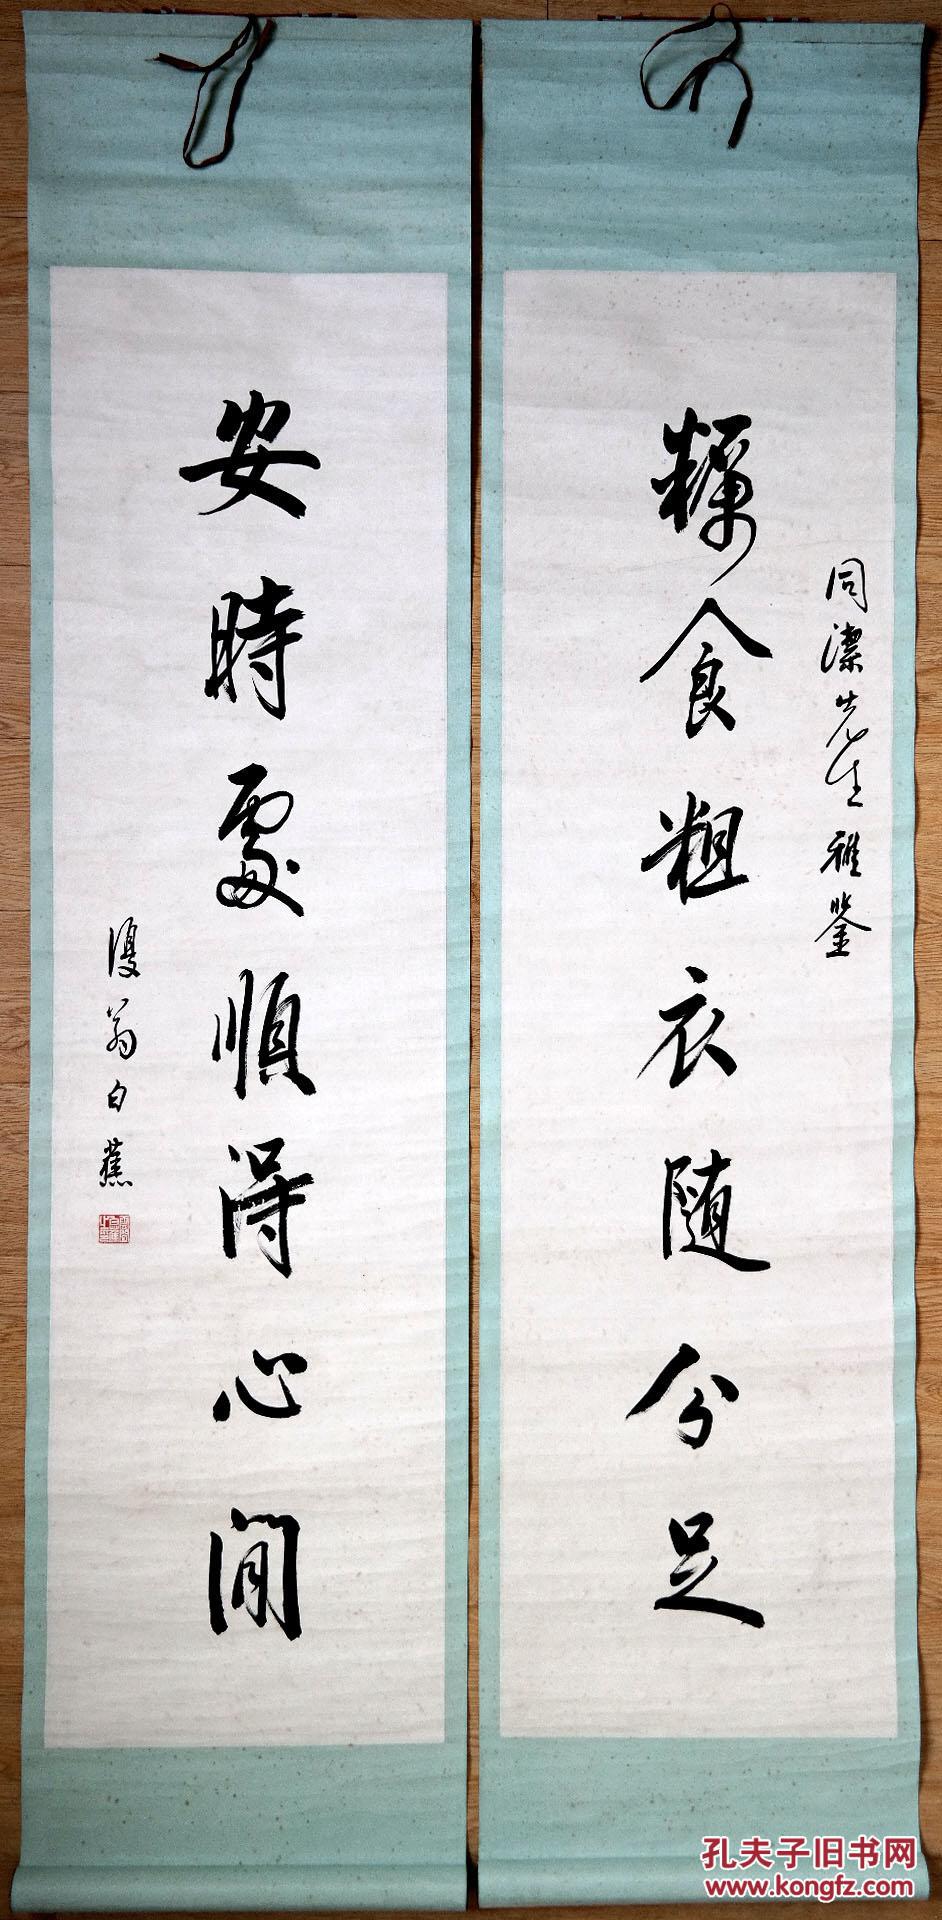 同潔先生雅鑒
糲食粗衣随分足
安時處順得心閒
復翁白蕉
孔夫子旧书网
www.kongfz.com